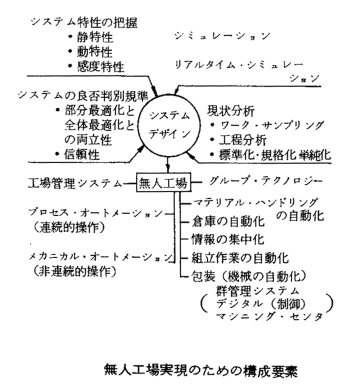 システム特性の把握
・静特性
・動特性
・感度特性
シミュレーション
リアルタイム・シミュレー
ション
システムの良否判別規準
・部分最適化と
全体最適化と
の両立性
・信頼性
システム
デザイン
現状分析
・ワーク・サンプリング
・工程分析
・標準化・規格化単純化
工場管理システム
無人工場
グループ・テクノロジー
プロセス・オートメーション
(連続的操作)
メカニカル・オートメーション
(非連続的操作)
マテリアル・ハンドリング
の自動化
倉庫の自動化
情報の集中化
組立作業の自動化
包装(機械の自動化)
群管理システム
デジタル(制御)
マシニング・センタ
無人工場実現のための構成要素